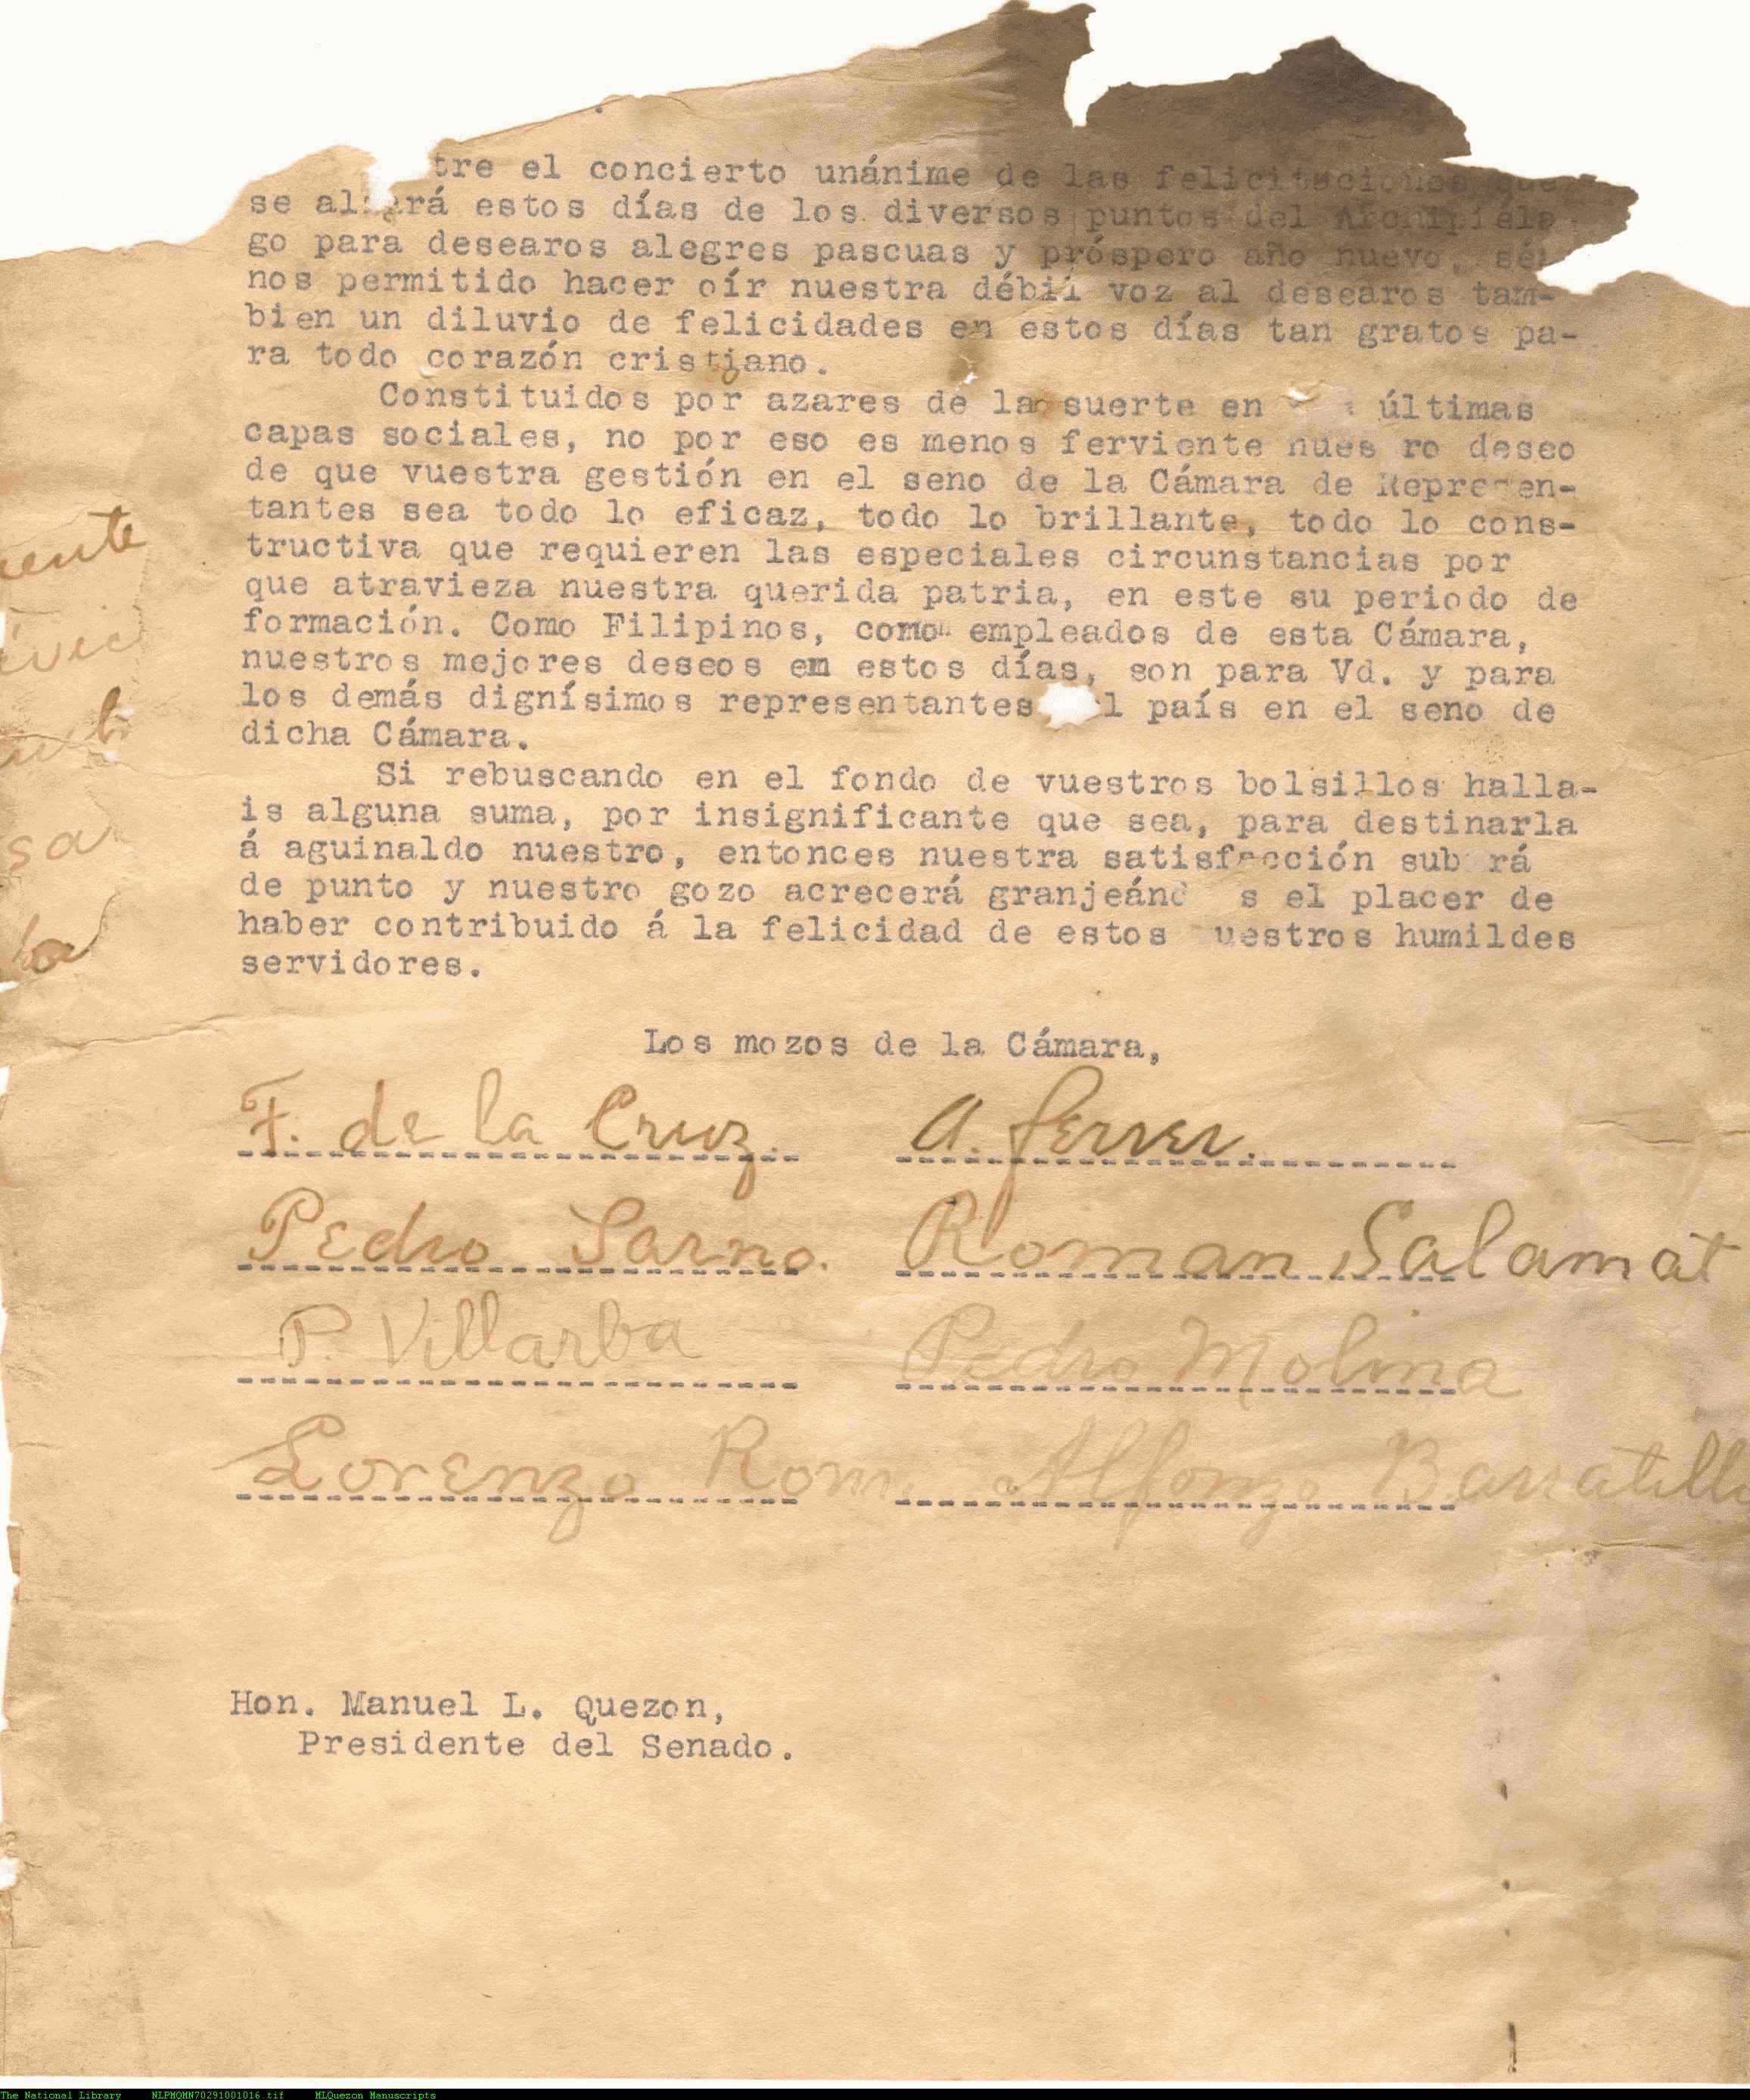 tre el concierto unánime de las felicitaciones que
se al rá estos días de los diversos puntos del Archipiéla
go para desearos alegres pascuas y próspero año nuevo, sé
nos permitido hacer oír nuestra débil voz al desearos tam-
bien un diluvio de felicidades en estos días tan gratos pa-
ra todo corazón cristiano.
Constituidos por azares de la suerte en últimas
capas sociales, no por eso es menos ferviente nues ro deseo
de que vuestra gestión en el seno de la Cámara de Represen-
tantes sea todo lo eficaz, todo lo brillante, todo lo cons-
tructiva que requieren las especiales circunstancias por
que atravieza nuestra querida patria, en este su periodo de
formación. Como Filipinos, como empleados de esta Cámara,
nuestros mejores deseos en estos días, son para Vd. y para
los demás dignísimos representantes l país en el seno de
dicha Cámara.
Si rebuscando en el fondo de vuestros bolsillos halla-
is alguna suma, por insignificante que sea, para destinarla
á aguinaldo nuestro, entonces nuestra satisfacción sub rá
de punto y nuestro gozo acrecerá granjeánd s el placer de
haber contribuido á la felicidad de estos uestros humildes
servidores.
Los mozos de la Cámara,
F. de la Cruz. A. Ferrer.
Pedro Sarno. Roman Salamat
P. Villarba Pedro Molina
Lorenzo Rom Alfonzo Barratillo
Hon. Manuel L. Quezon,
Presidente del Senado.
The National Library NLPMQMN70291001016.tif MLQuezon Manuscripts